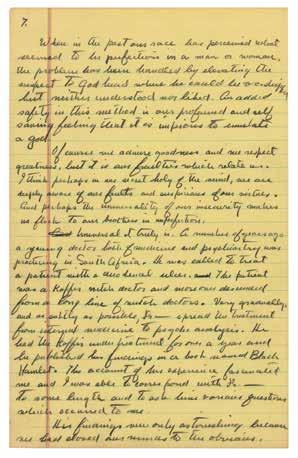 7.
When in the past our race has perceived what
seemed to be perfection in a man or woman,
the problem has been handled by elevating the
suspect to God head where he could be worshipped
but neither understood nor liked. An added
safety in this method is our profound and self
saving feeling that it is impious to emulate
a god.
Of course we admire goodness and we respect
greatness, but it is our faults which relate us.
I think perhaps in our secret holy of the mind, we are
deeply aware of our faults and suspicious of our virtues.
And perhaps the universality of our insecurity makes
us flock to our brothers in imperfection.
Universal it truly is. A number of years ago
a young doctor both of medicine and psychiatry was
practicing in South Africa. He was called to treat
a patient with a duodenal ulcer. The patient
was a Kaffir witch doctor and moreover descended
from a long line of witch doctors. Very gradually,
and as subtly as possible, Dr — spread his treatment
from internal medicine to psycho analysis. He
had the Kaffir under treatment for over a year and
he published his findings in a book named Black
Hamlet. This account of his experience fascinated
me and I was able to correspond with Dr. —
to some length and to ask him various questions
which occurred to me.
His findings were only astonishing because
we had closed our minds to the obvious.